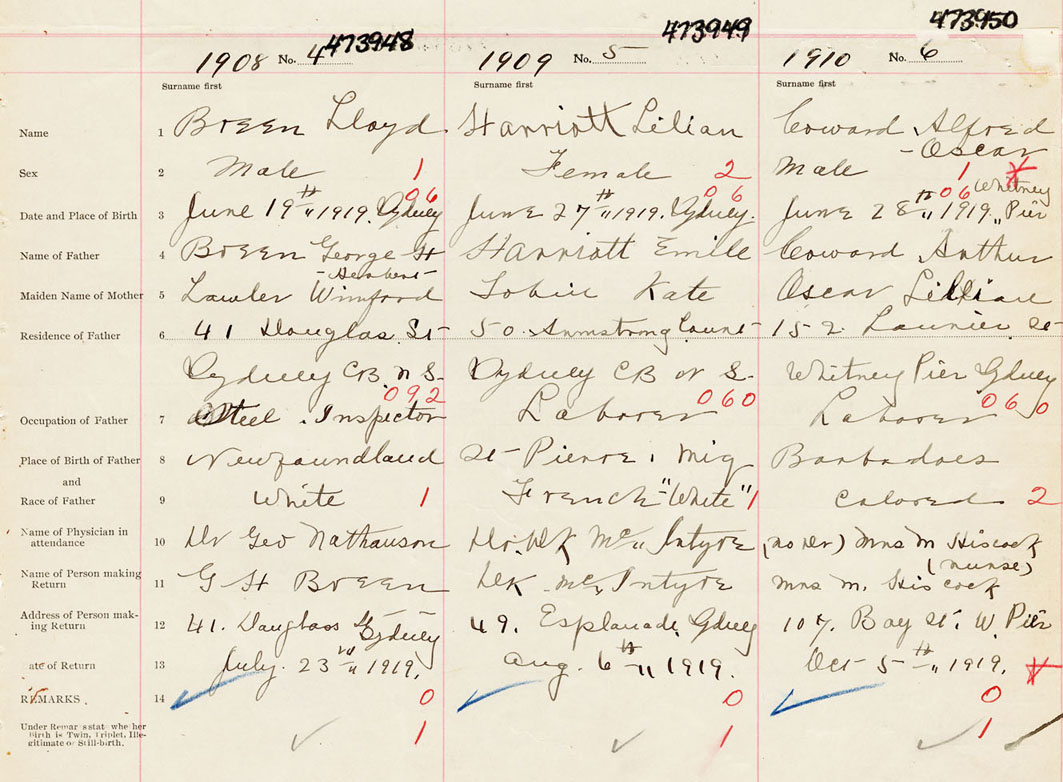 473948 473949 473950
1908 No. 4 1909 No. 5 1910 No. 6
Surname first Surname first Surname first
Name 1 Breen Lloyd Harriott Lilian Coward Alfred
- Oscar
Sex 2 Male 1 Female 2 Male 1
06 06 06 Whitney
Date and Place of Birth 3 June 19th " 1919. Sydney June 27th " 1919. Sydney. June 28th " 1919 " Pier
Name of Father 4 Breen George H Harriott Emile Coward Arthur
- Herbert -
Maiden Name of Mother 5 Lawler Winiford Tobin Kate Oscar Lillian
Residence of Father 6 41 Douglas St 50. Armstrong Court 152 Launier St
Sydney CB. N S. Sydney CB N S. Whitney Pier Sydney
092 060 060
Occupation of Father 7 Steel Inspector Laborer Laborer
Place of Birth of Father 8 Newfoundland St Pierre, Miq Barbadoes
and
Race of Father 9 White 1 French "White" 1 Colored 2
Name of Physician in
attendance 10 Dr Geo Nathanson Dr. DK Mc" Intyre (no Dr) Mrs M Hiscock
(nurse)
Name of Person making
Return 11 G H Breen DK Mc Intyre Mrs M. Hiscock
Address of Person mak-
ing Return 12 41. Douglass St Sydney 49. Esplanade, Sydney 107. Bay St. W. Pier
ate of Return 13 July. 23rd " 1919. Aug. 6th " 1919. Oct 5th " 1919.
REMARKS 14 0 0 0
Under Remarks state whether
Birth is Twin, Triplet, Ille-
gitimate or Still-birth. 1 1 1